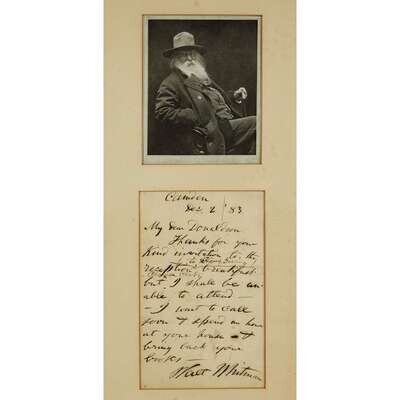 Camden
Dec. 2 / 83
My dear Donaldson
Thanks for your
kind invitation to the
reception & breakfast
but I shall be un-
able to attend —
— I want to come
soon & spend an hour
at your house & 
bring back your
books —
Walt Whitman